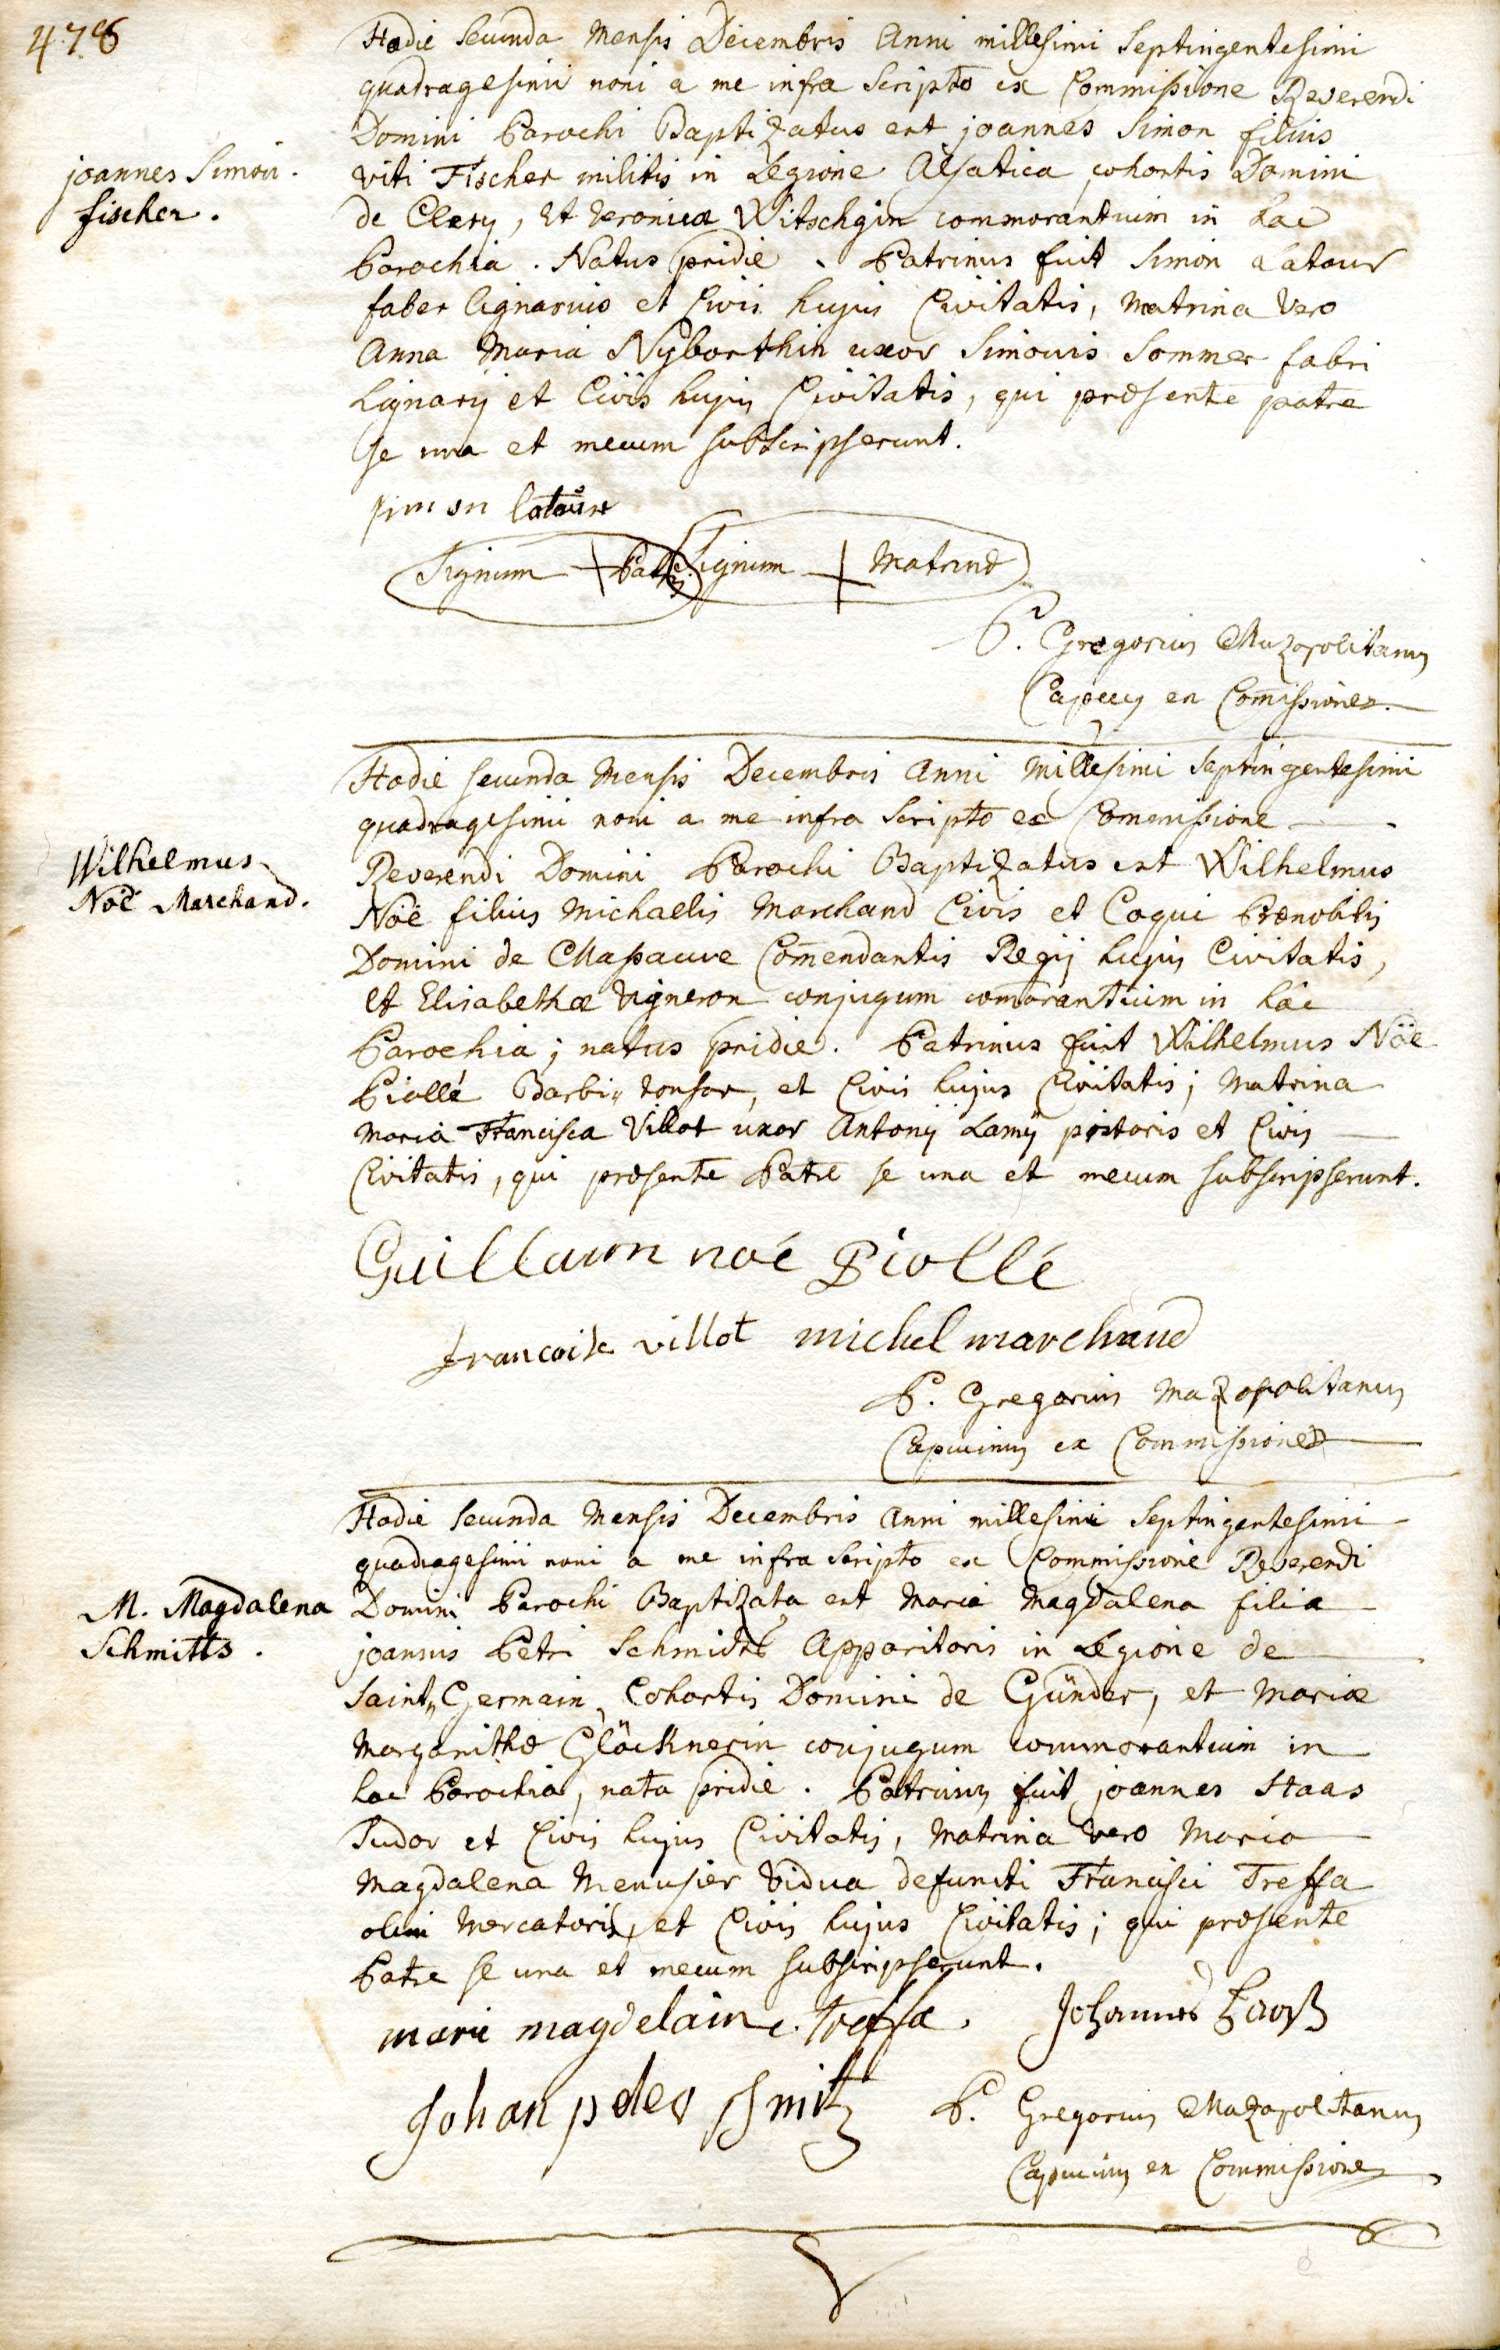 478
joannes Simon.
fischer.
Hodie Secunda Mensis Decembris Anni millesimi Septingentesimi
quadragesimi noni a me infra Scripto ex Commissione Reverendi
Domini Parochi Baptizatus est joannes Simon filius
viti Fischer militis in Legione Alsatica cohortis Domini
de Clery, et Veronicæ Witschgin commorantium in hac
Parochia. Natus pridie. Patrinus fuit Simon Latour
faber lignarius et Civis hujus Civitatis, matrina vero
Anna Maria Nyborthin uxor Simonis Sommer fabri
Lignarij et Civis hujus Civitatis, qui præsente patre
se una et mecum subscripserunt.
simon latour
Signum + Patris Signum + Matrinæ
P. Gregorius Muzopolitanus
Capuc. ex Commissione.
Wilhelmus
Noë Marchand.
Hodie secunda Mensis Decembris Anni Millesimi Septingentesimi
quadragesimi noni a me infra Scripto ex Commissione
Reverendi Domini Parochi Baptizatus est Wilhelmus
Nöe filius Michaelis Marchand Civis et Coqui Prænobilis
Domini de Massauve Com̄endantis Regij hujus Civitatis,
et Elisabethæ Vigneron conjugum com̄orantium in hâc
Parochia; natus pridie. Patrinus fuit Wilhelmus Nöe
Piollé Barbi„ tonsor, et Civis hujus Civitatis; Matrina
Maria Francisca Villot uxor Antonij Lamÿ pistoris et Civis
Civitatis, qui præsente Patre se una et mecum subscripserunt.
Guillaum noé Piollé
francoise villot michel marchand
P. Gregorius Mazopolitanus
Capucinus ex Commissione
M. Magdalena
Schmitts.
Hodie Secunda Mensis Decembris Anni millesimi Septingentesimi
quadragesimi noni a me infra Scripto ex Commissione Reverendi
Domini Parochi Baptizata est Maria Magdalena filia
joannis Petri Schmidts Apparitoris in Legione de
Saint„ Germain, Cohortis Domini de Günder, et Mariæ
Margarithæ Glöcknerin conjugum commorantium in
hac Parochia, nata pridie. Patrinus fuit joannes Haas
Sudor et Civis hujus Civitatis, Matrina vero Maria
Magdalena Menusier Vidua defuncti Francisci Treffa
olim Mercatoris, et Civis hujus Civitatis; qui præsente
Patre se una et mecum subscripserunt.
marie magdelaine. treffa. Johannes
Johan peder smitz P. Gregorius Mazopolitanus
Capucinus ex Commissione